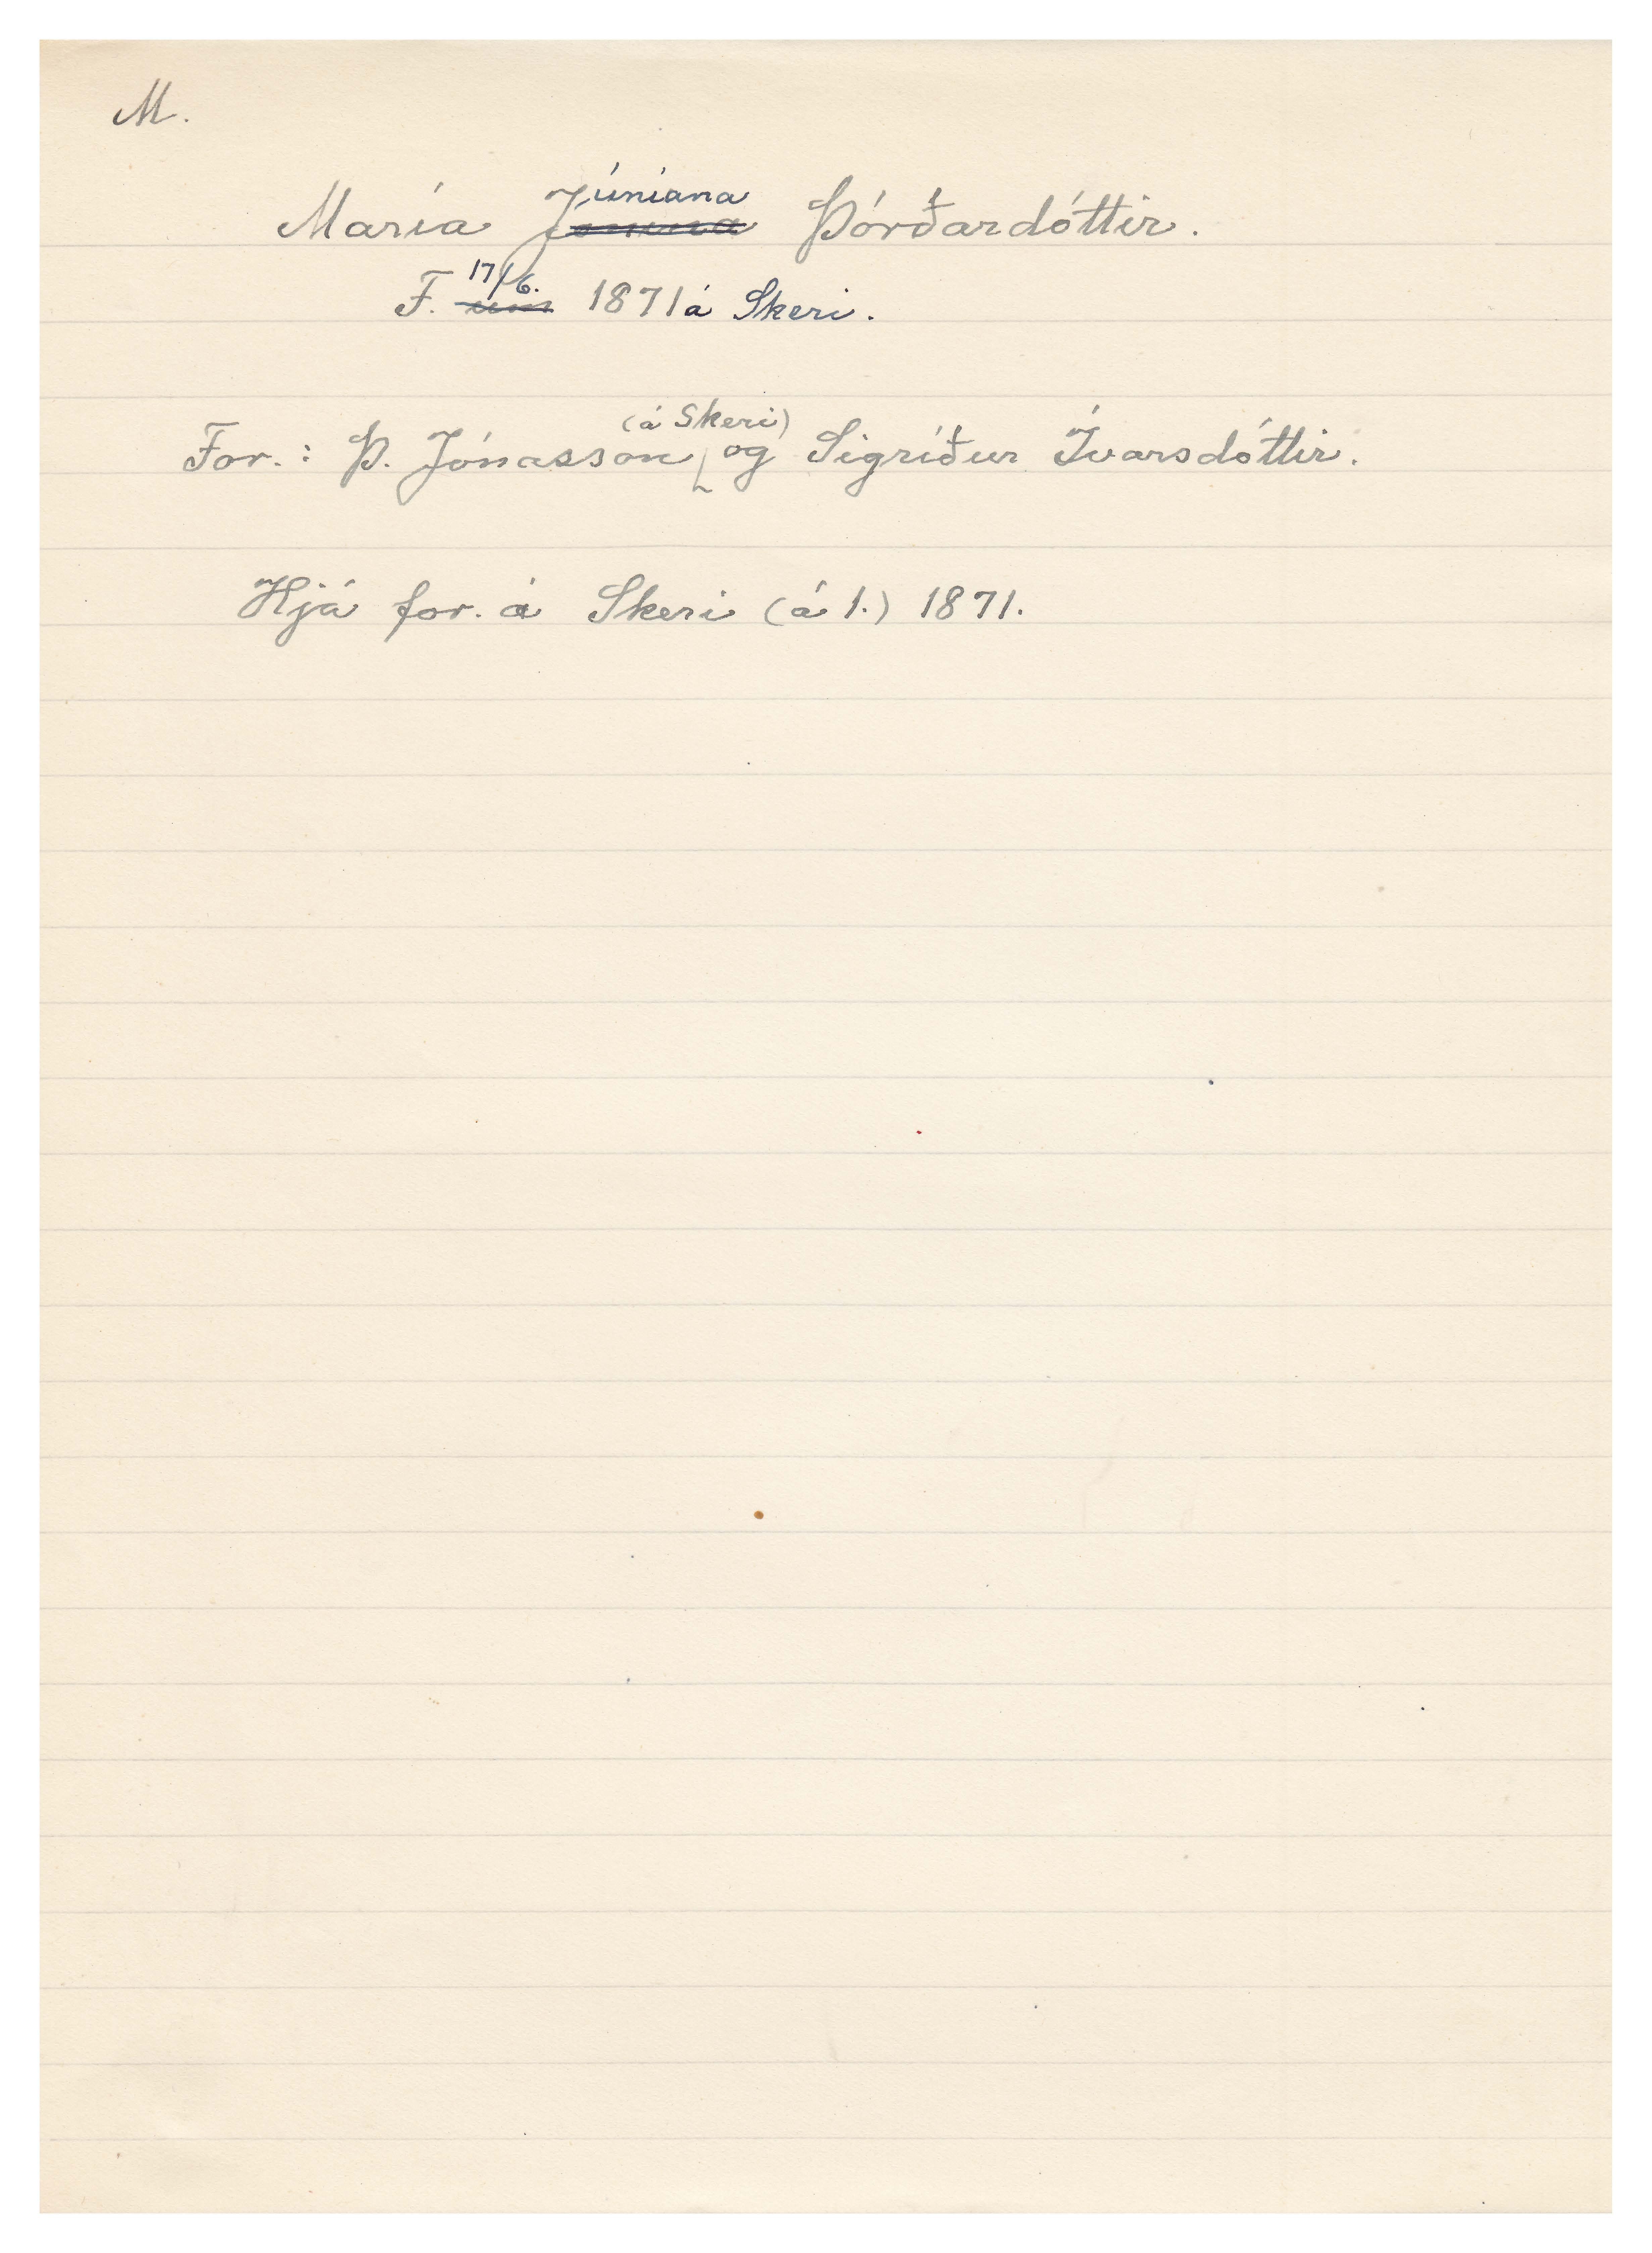 M.
María Júníana Þórðardóttir.
F. 17/6. 1871 á Skeri.
For.: Þ. Jónasson (á Skeri) og Sigríður Ívarsdóttir.
Hjá for. á Skeri (á 1.) 1871.